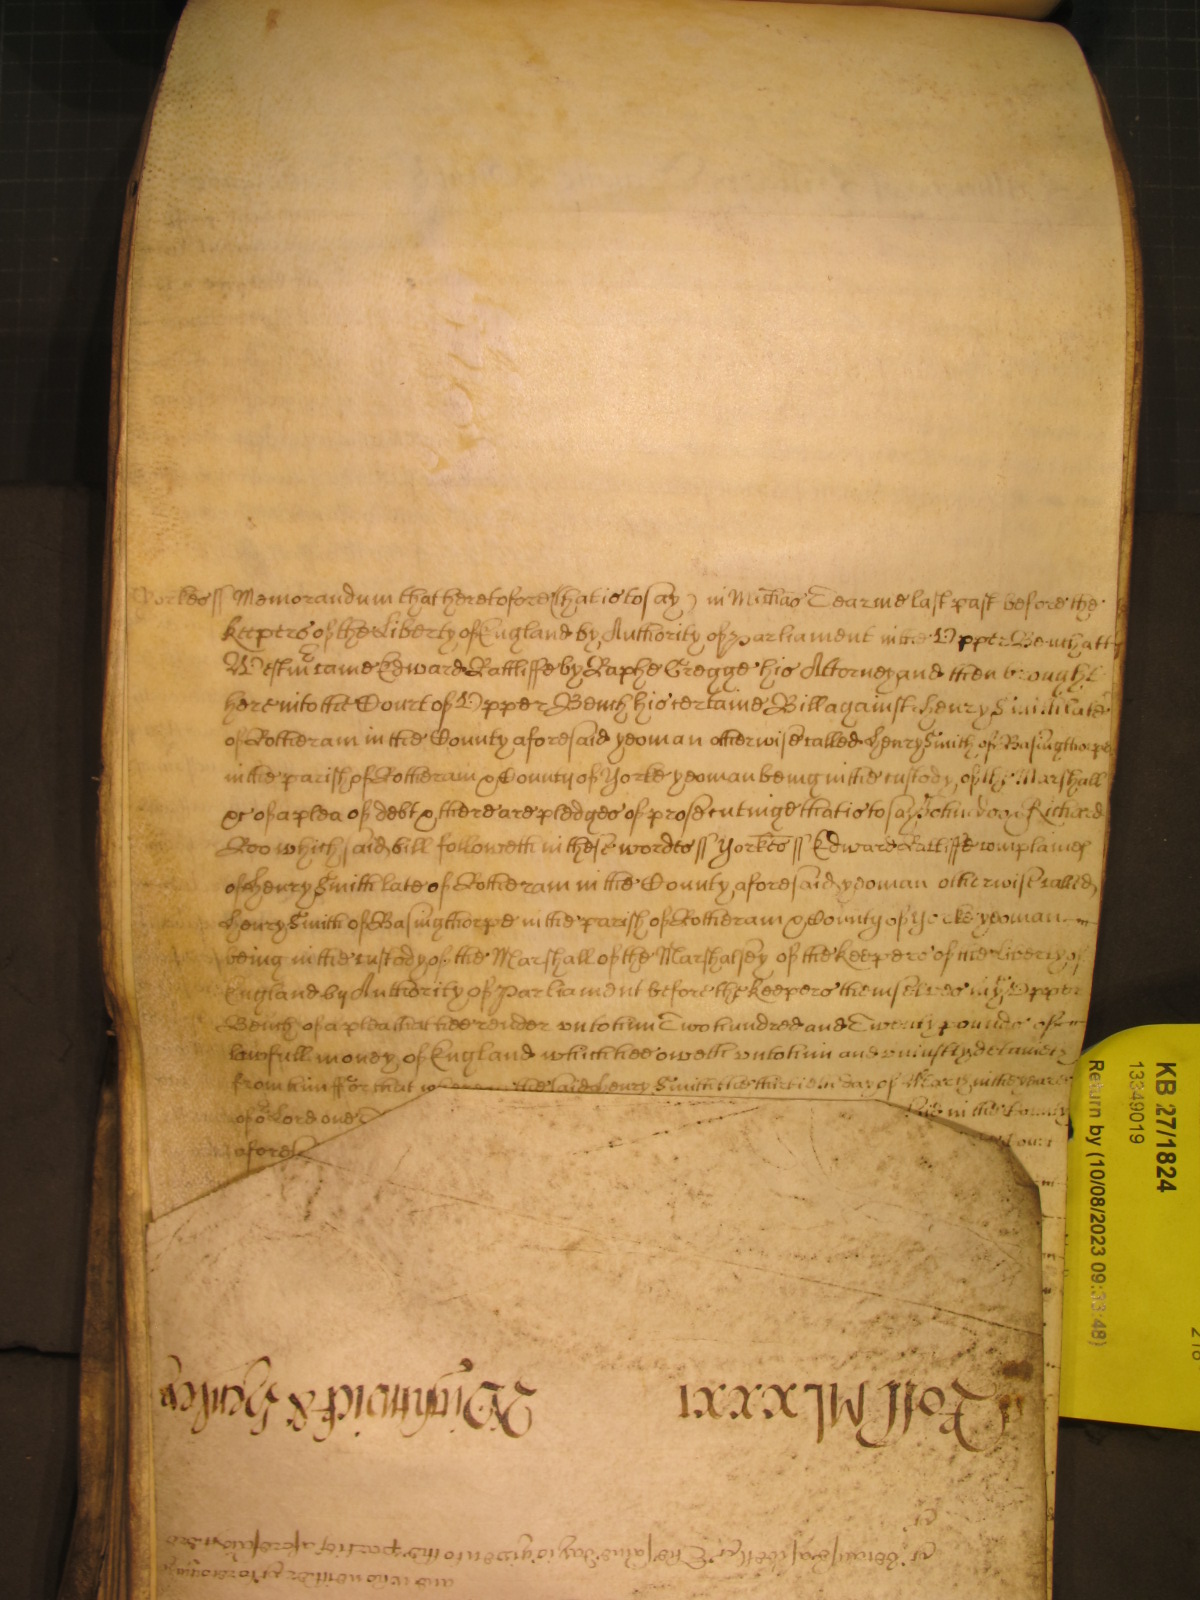 Yorkes ss Memorandum that heretofore (that is to say) in Michas Tearme last past before the
keepers of the Liberty of England by Authority of Parliament in the Upper Bench att
Westmr came Edward Ratliffe by Raphe Gregge his Attorney and then brought
here into the Court of Upper Bench his certaine Bill against Henry Smith late
of Rotheram in the County aforesaid yeoman otherwise called Henry Smith of Basingthorpe
in the parish of Rotheram & County of Yorke yeoman being in the custody of the Marshall
&c of a plea of debt & there are pledges of prosecutinge that is to say John Doo & Richard
Roo which said bill followeth in these wordes ss Yorkes ss Edward Ratliffe complaines
of Henry Smith late of Rotheram in the County aforesaid yeoman otherwise called
Henry Smith of Basingthorpe in the parish of Rotheram & County of Yorke yeoman
being in the custody of the Marshall of the Marshalsey of the keepers of the liberty of
England by Authority of Parliament before the keepers themselves in ye Upper
Bench of a plea that hee render unto him Two hundred and Twenty pounds of
lawfull money of England which hee oweth unto him and uniustly detaineth
from him ffor that the said Henry Smith the thirtieth day of March in the yeare
of or Lord one in the County
aforesd
Roll Mlxxxi Wightwick & Henley
&c
&c because aswell &c The same day is given to the parties aforesaid
KB 27/1824
13349019
Return by (10/08/2023 09:33:48)